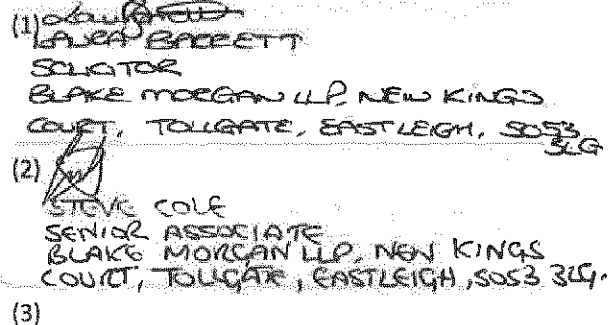 (1)
LAURA BARRETT
SOLICITOR
BLAKE MORGAN LLP, NEW KINGS
COURT, TOLLGATE, EASTLEIGH, SO53
3LG
(2)
STEVE COLE
SENIOR ASSOCIATE
BLAKE MORGAN LLP, NEW KINGS
COURT, TOLLGATE, EASTLEIGH, SO53 3LG.
(3)